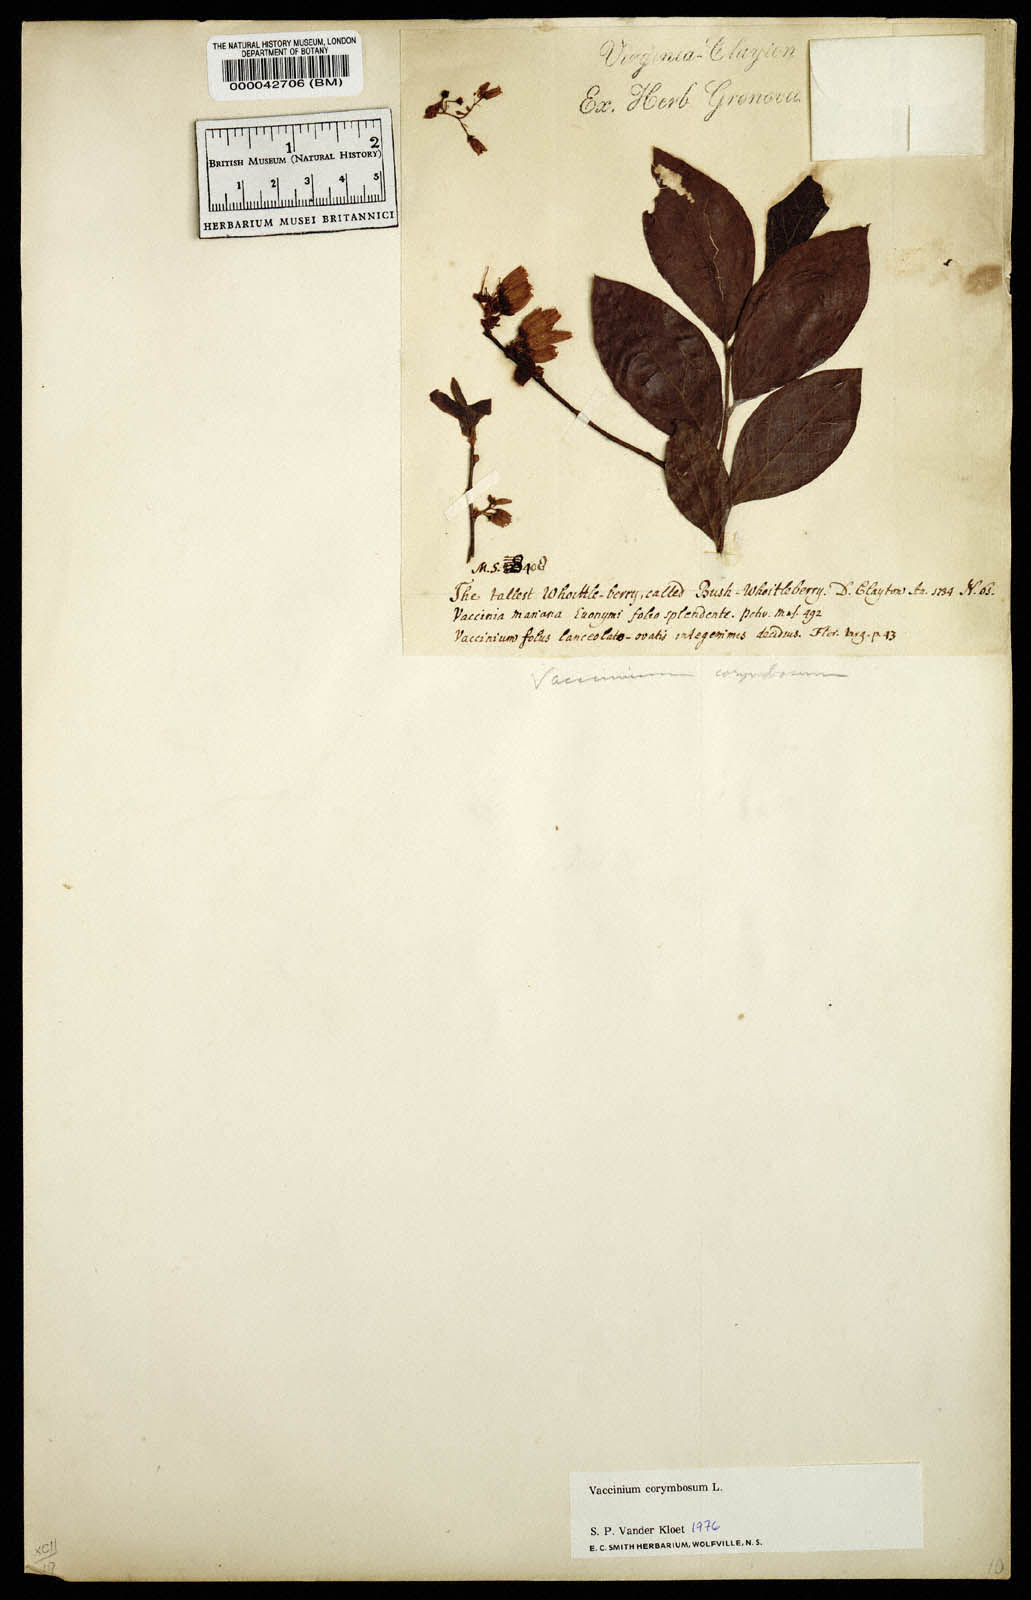 THE NATURAL HISTORY MUSEUM, LONDON
DEPARTMENT OF BOTANY
000042706 (BM)
1 2
BRITISH MUSEUM (NATURAL HISTORY)
1 2 3 4 5
HERBARIUM MUSEI BRITANNICI
Virginia Clayton
Ex. Herb Gronovii
M.S. 408
The tallest Whorttle-berry, called Bush-Whortleberry. D. Clayton An. 1734 N. 65.
Vaccinia mariana Euonymi folio splendente. Petiv. mus. 492
Vaccinium foliis lanceolato-ovatis integerrimis deciduis. Flor. Virg. p. 43
Vaccinium corymbosum
Vaccinium corymbosum L.
S. P. Vander Kloet 1976
E. C. SMITH HERBARIUM, WOLFVILLE, N. S.
XCII
19
10